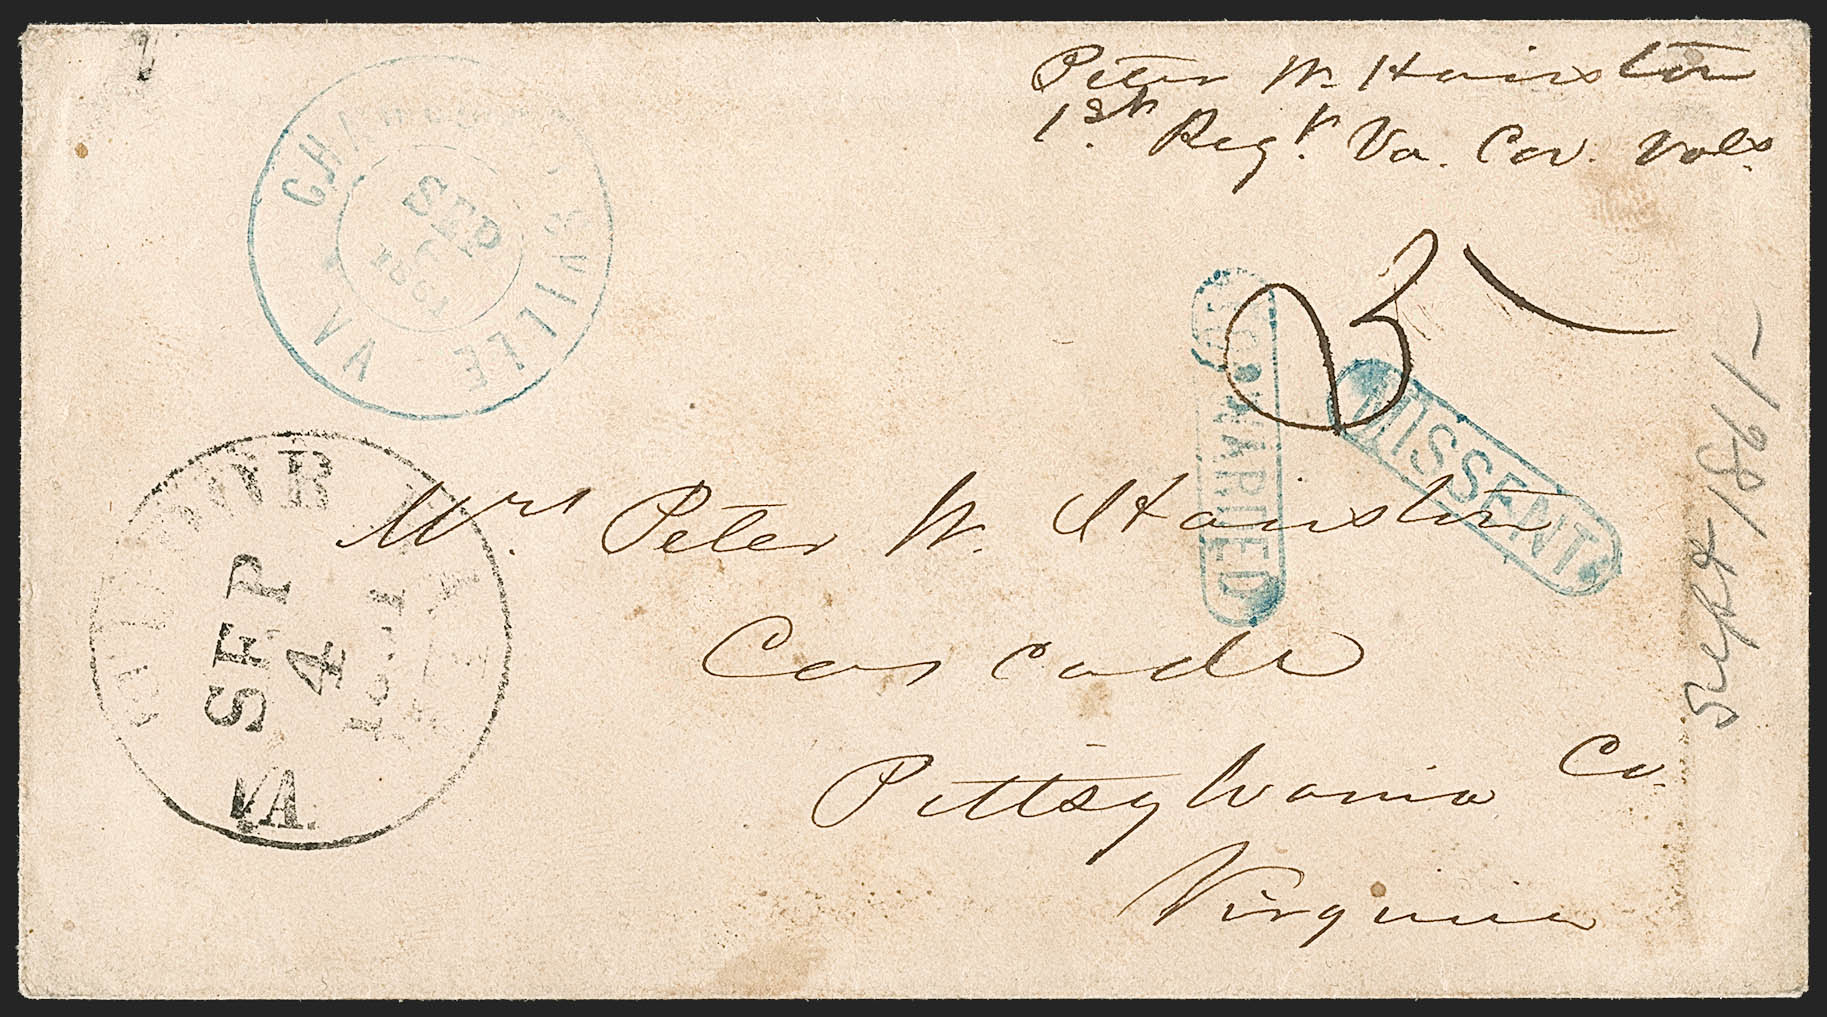 Peter W. Hairston
1st Regt. Va. Cav. Vols.
SEP
1861
VA
MISSENT
SEP
4
1861
VA.
Mrs Peter W. Hairston
Cascade
Pittsylvania Co.
Virginia
Sept 1861-